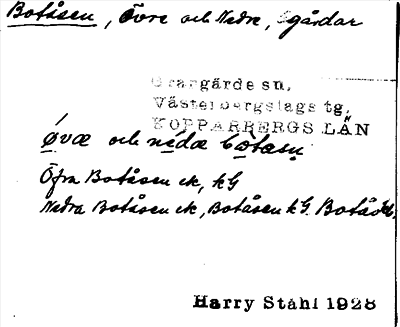 Botåsen, Övre och Nedre, gårdar
Grangärde sn.
Västerbergslags tg.
KOPPARBERGS LÄN
ǿvœ och nedœ
Öfra Botåsen ek, kG
Nedra Botåsen ek, Botåsen kG.
Harry Ståhl 1928